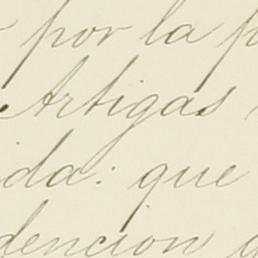 por la p
Artigas
ida: que
dencion